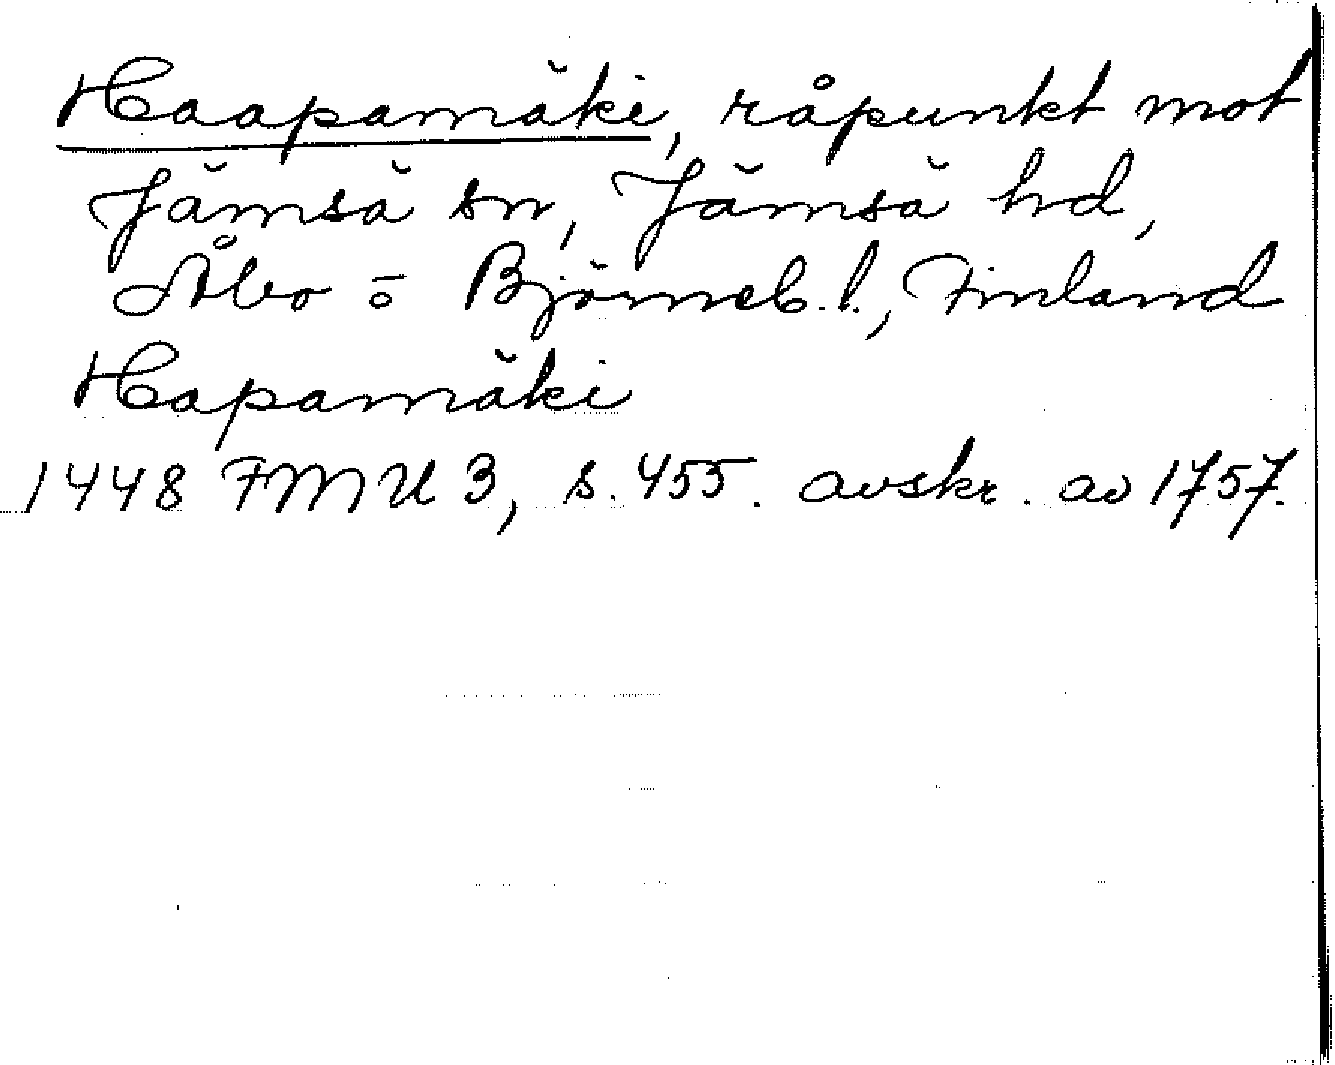 Haapamäki, råpunkt mot
Jämsä sn, Jämsä hd,
Åbo ö Björneb. l., Finland
Hapamäki
1448 FMU 3, s. 455. avskr. av 1757.